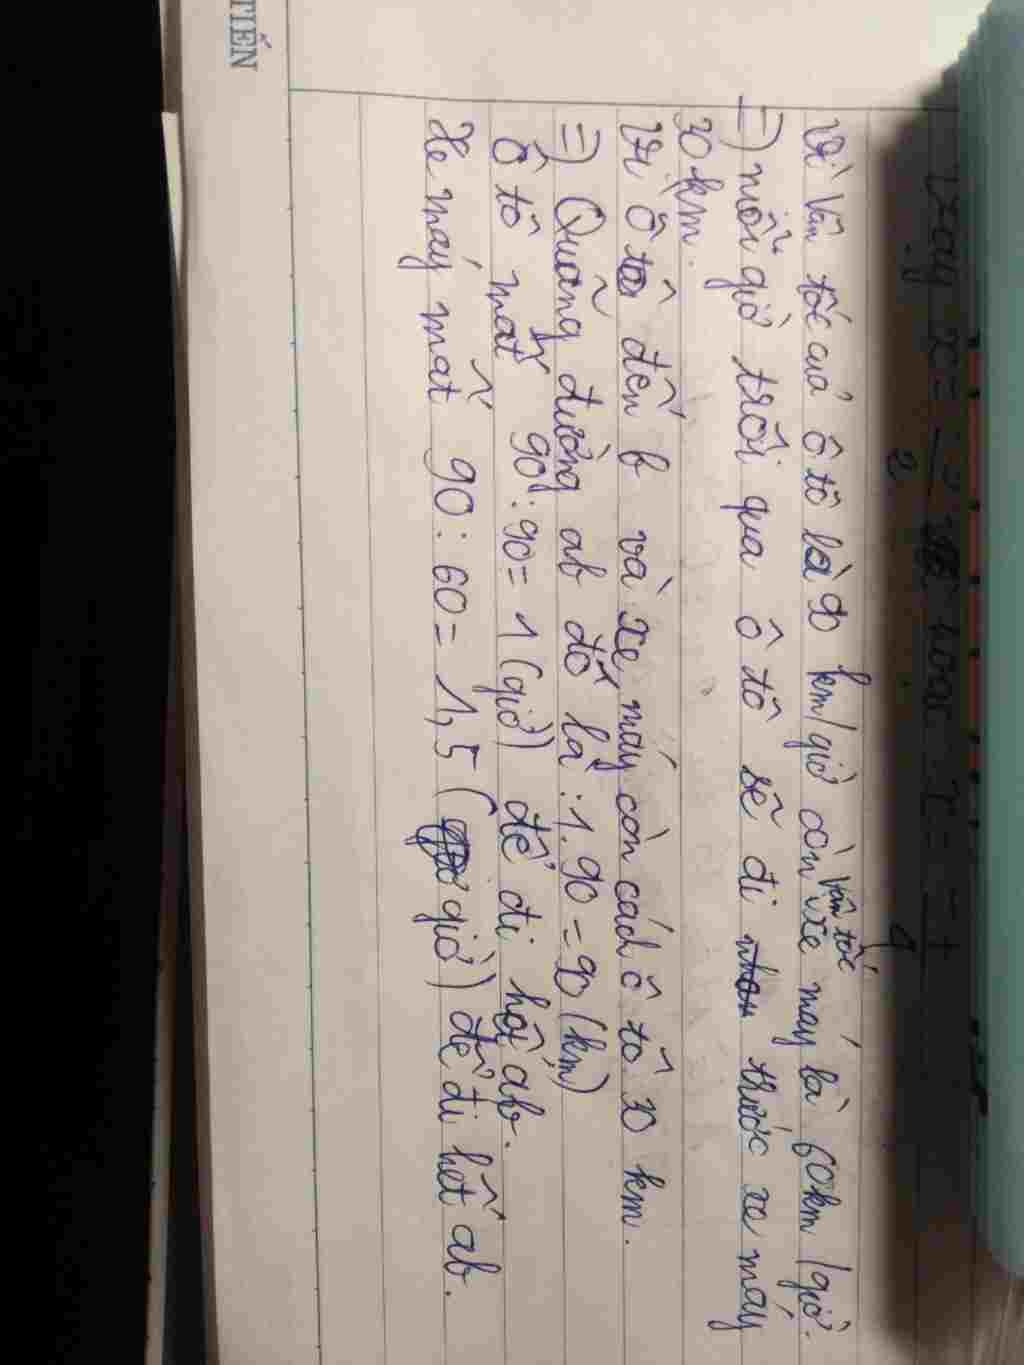 Vậy x = 2 hoặc x = -1
2 4
Vì Vận tốc của ô tô là 90 km/giờ còn vận tốc xe máy là 60km/giờ.
=) mỗi giờ trôi qua ô tô sẽ đi trước xe máy
30km.
Vì ô tô đến b và xe máy còn cách ô tô 30 km.
=) Quãng đường ab đó là : 1.90 = 90 (km)
Ô tô mất 90 : 90 = 1 (giờ) để đi hết ab.
Xe máy mất 90 : 60 = 1,5 (giờ) để đi hết ab.
TIẾN